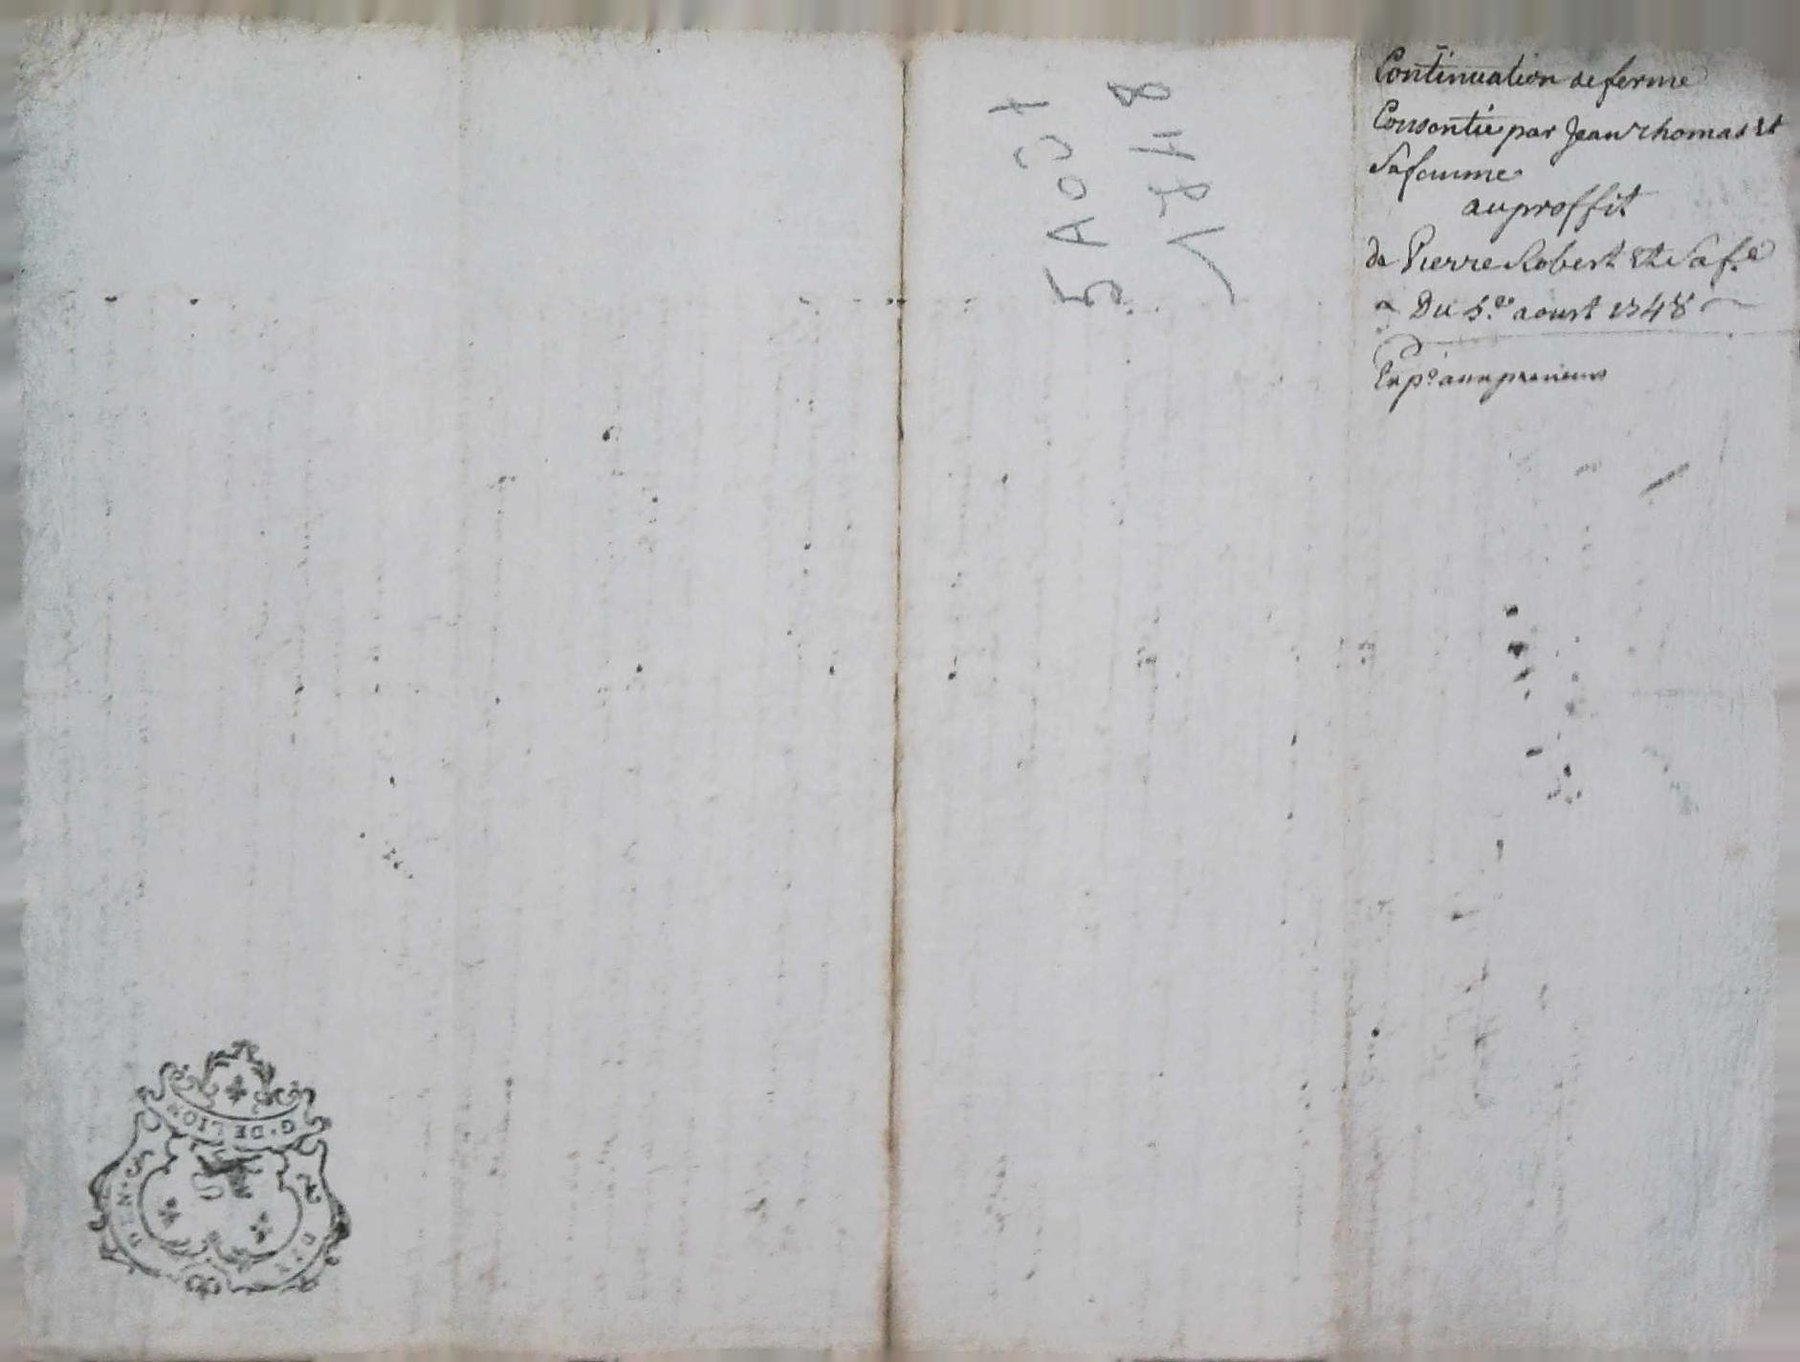 Continuation de ferme
Consentie par Jean Thomas et
Sa femme
au proffit
de Pierre Robert et Sa f.e
Du 5.e aoust 1748
Exp.e aux preneurs
5 Août
1748
G · DE LION